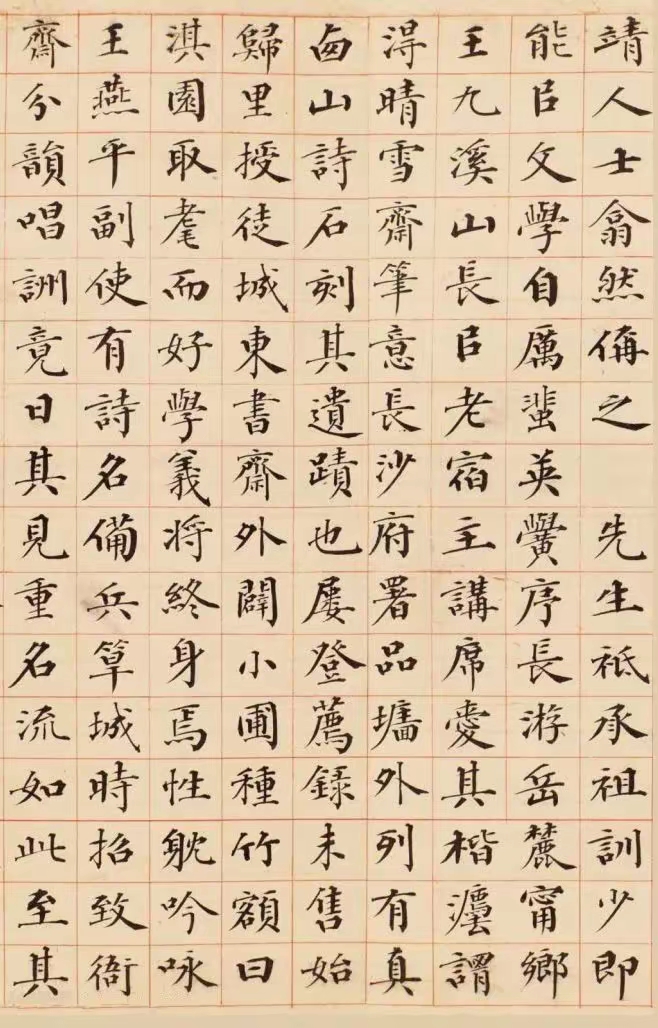 靖人士翕然偁之　先生祗承祖訓少即
能㠯文學自厲蜚英黌序長游岳麓甯鄉
王九溪山長㠯老宿主講席愛其楷灋謂
淂晴雪齋筆意長沙府署品墻外列有真
卥山詩石刻其遺蹟也屢登薦録未售始
歸里授徒城東書齋外闢小圃種竹額曰
淇園取耄而好學義将終身焉性躭吟咏
王燕平副使有詩名備兵筸城時招致衙
齋分韻唱詶竟日其見重名流如此至其